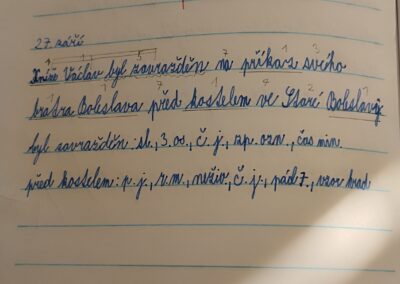 27. září
Kníže Václav byl zavražděn na příkaz svého
bratra Boleslava před kostelem ve Staré Boleslavi
byl zavražděn: sl., 3. os., č. j., zp. ozn., čas min.
před kostelem: p. j., r. m., neživ., č. j., pád 7., vzor hrad